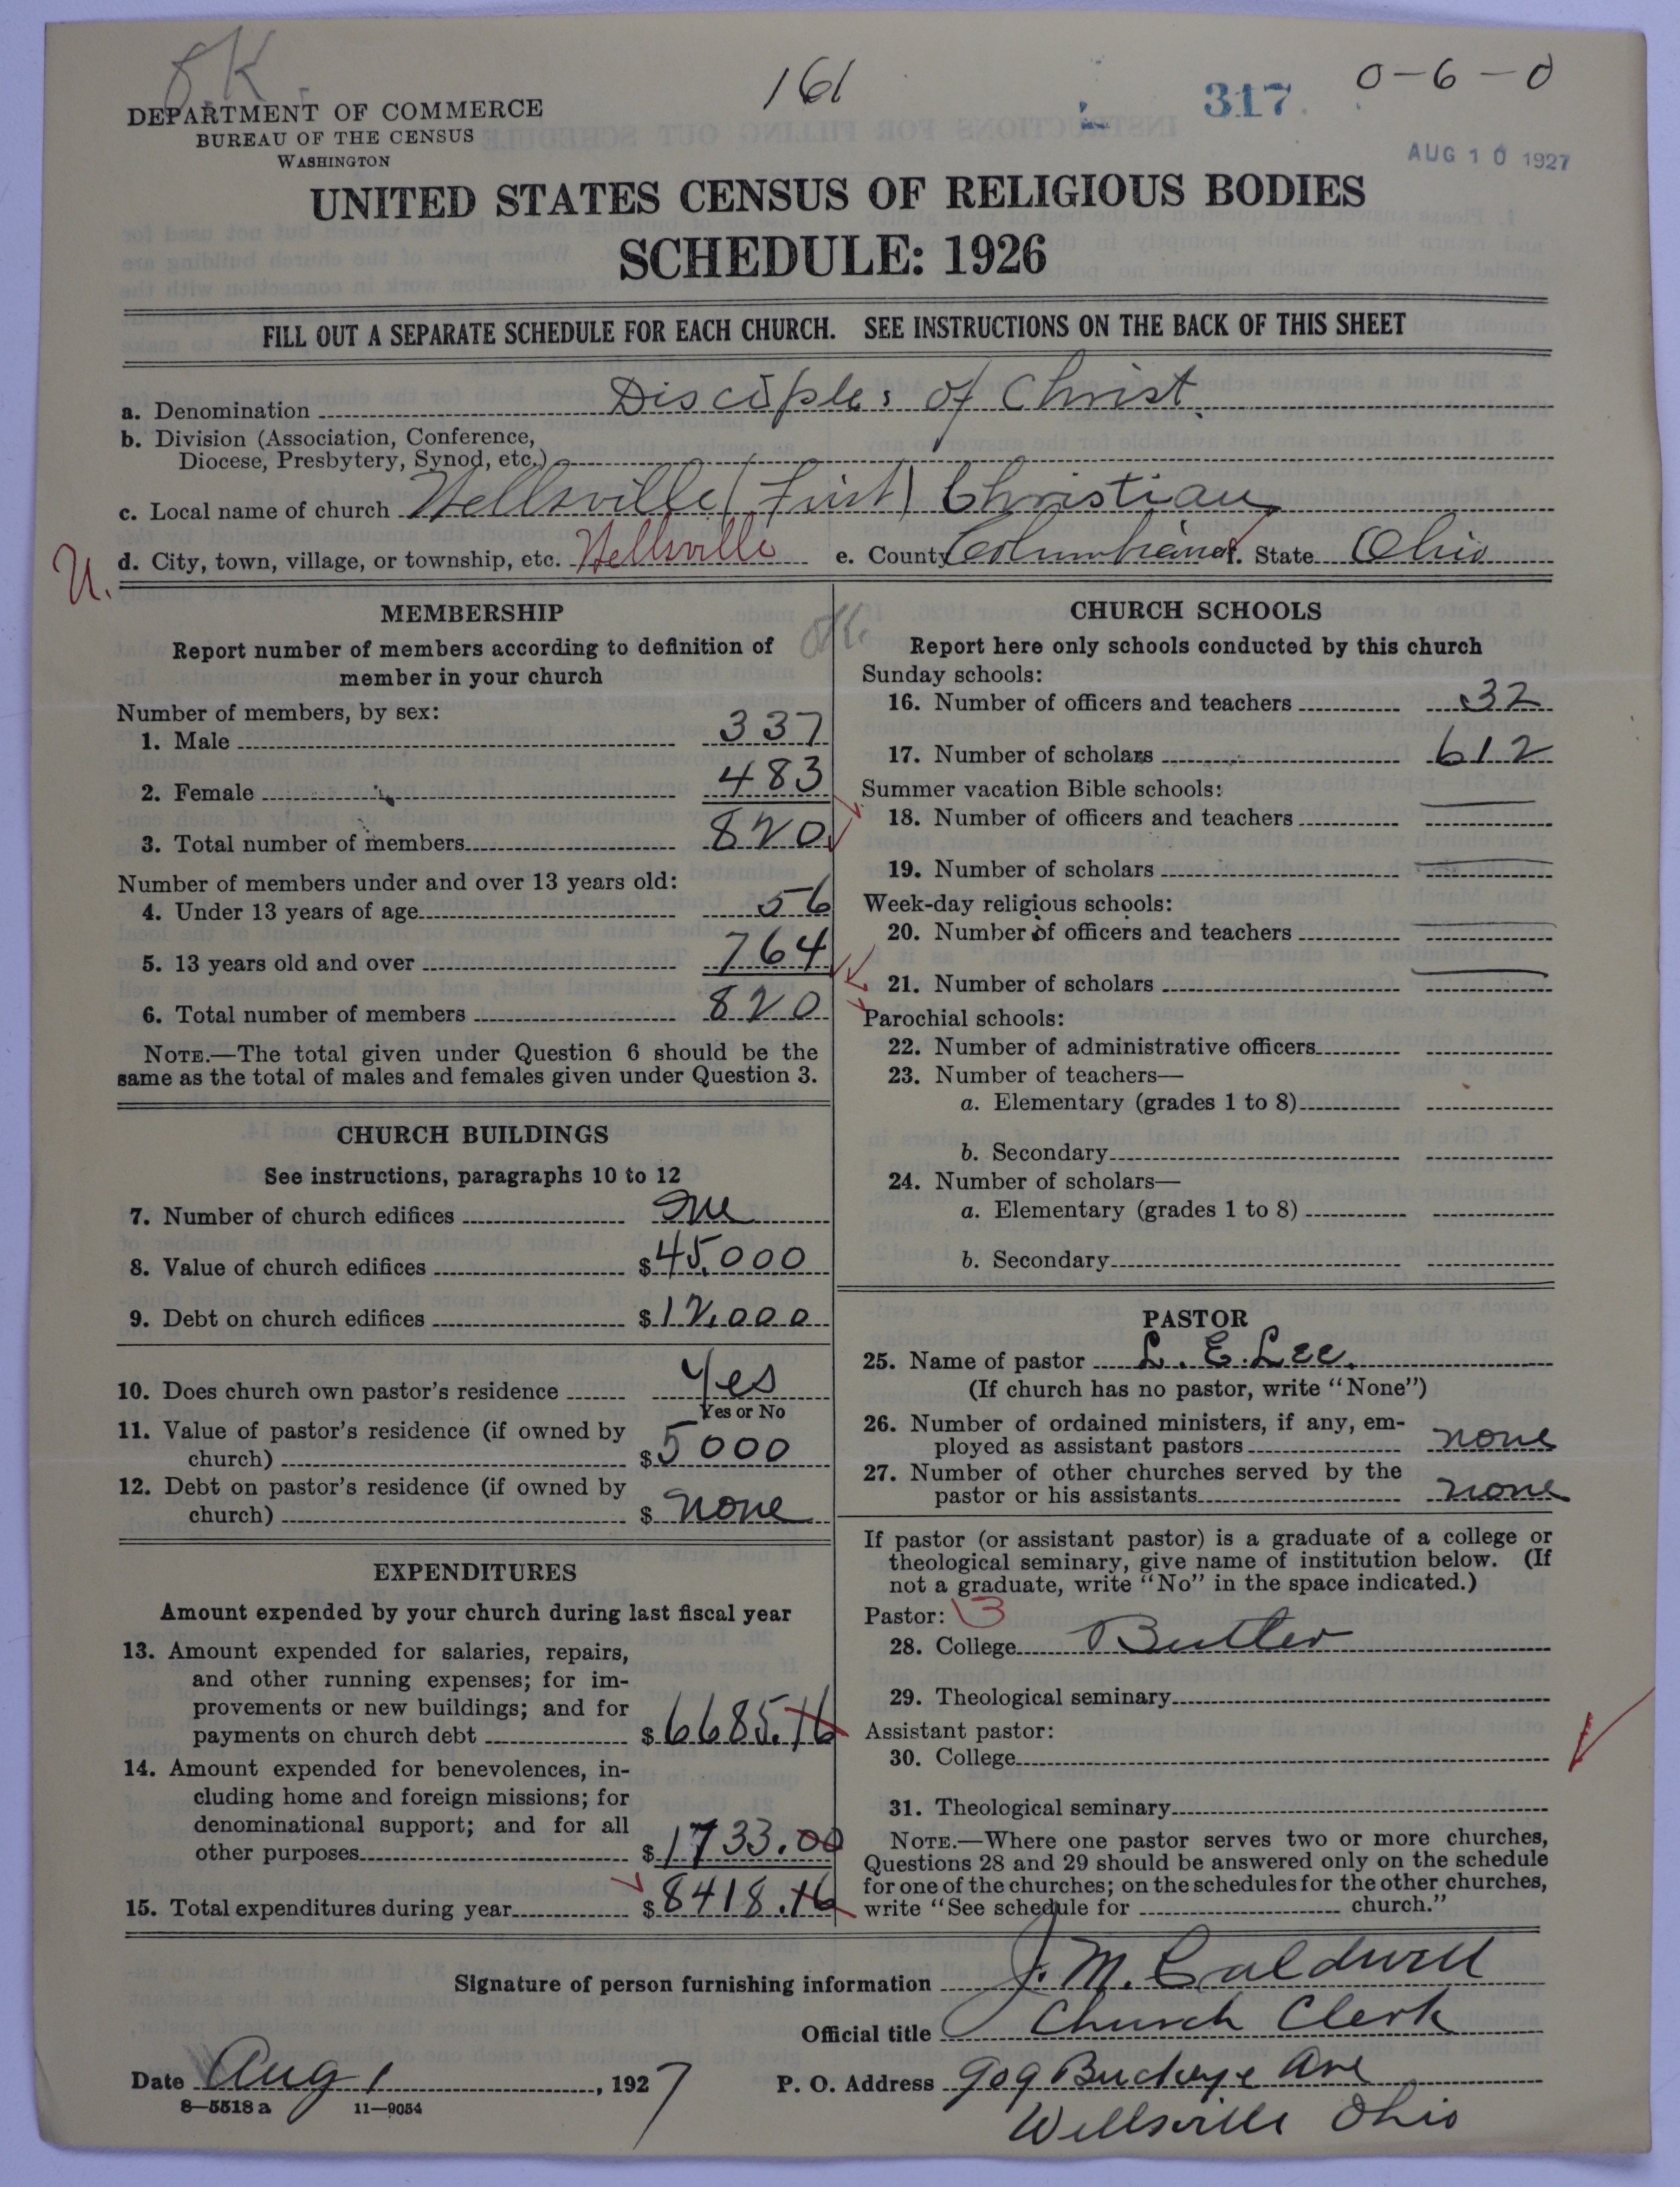 O.K.
161
317
0-6-0
DEPARTMENT OF COMMERCE
BUREAU OF THE CENSUS
WASHINGTON
AUG 10 1927
UNITED STATES CENSUS OF RELIGIOUS BODIES
SCHEDULE: 1926
FILL OUT A SEPARATE SCHEDULE FOR EACH CHURCH. SEE INSTRUCTIONS ON THE BACK OF THIS SHEET
a. Denomination Disciples of Christ.
b. Division (Association, Conference,
Diocese, Presbytery, Synod, etc.)
c. Local name of church Wellsville (First) Christian
U.
d. City, town, village, or township, etc. Wellsville e. County Columbiana f. State Ohio
MEMBERSHIP
Report number of members according to definition of
member in your church
Number of members, by sex:
1. Male 337
2. Female 483
3. Total number of members 820
Number of members under and over 13 years old:
4. Under 13 years of age 56
5. 13 years old and over 764
6. Total number of members 820
NOTE.—The total given under Question 6 should be the
same as the total of males and females given under Question 3.
CHURCH BUILDINGS
See instructions, paragraphs 10 to 12
7. Number of church edifices One
8. Value of church edifices $45,000
9. Debt on church edifices $12,000
10. Does church own pastor's residence Yes
Yes or No
11. Value of pastor's residence (if owned by
church) $5000
12. Debt on pastor's residence (if owned by
church) $ none
EXPENDITURES
Amount expended by your church during last fiscal year
13. Amount expended for salaries, repairs,
and other running expenses; for im-
provements or new buildings; and for
payments on church debt $6685.16
14. Amount expended for benevolences, in-
cluding home and foreign missions; for
denominational support; and for all
other purposes $1733.00
15. Total expenditures during year $8418.16
OK
CHURCH SCHOOLS
Report here only schools conducted by this church
Sunday schools:
16. Number of officers and teachers 32
17. Number of scholars 612
Summer vacation Bible schools:
18. Number of officers and teachers
19. Number of scholars
Week-day religious schools:
20. Number of officers and teachers
21. Number of scholars
Parochial schools:
22. Number of administrative officers
23. Number of teachers—
a. Elementary (grades 1 to 8)
b. Secondary
24. Number of scholars—
a. Elementary (grades 1 to 8)
b. Secondary
PASTOR
25. Name of pastor L. E. Lee.
(If church has no pastor, write "None")
26. Number of ordained ministers, if any, em-
ployed as assistant pastors none
27. Number of other churches served by the
pastor or his assistants none
If pastor (or assistant pastor) is a graduate of a college or
theological seminary, give name of institution below. (If
not a graduate, write "No" in the space indicated.)
Pastor: 3
28. College Butler
29. Theological seminary
Assistant pastor:
30. College
31. Theological seminary
NOTE.—Where one pastor serves two or more churches,
Questions 28 and 29 should be answered only on the schedule
for one of the churches; on the schedules for the other churches,
write "See schedule for church."
Signature of person furnishing information J. M. Caldwell
Official title Church Clerk
Date Aug 1, 1927
P. O. Address 909 Buckeye Ave
Wellsville Ohio
8—5518 a 11—9054